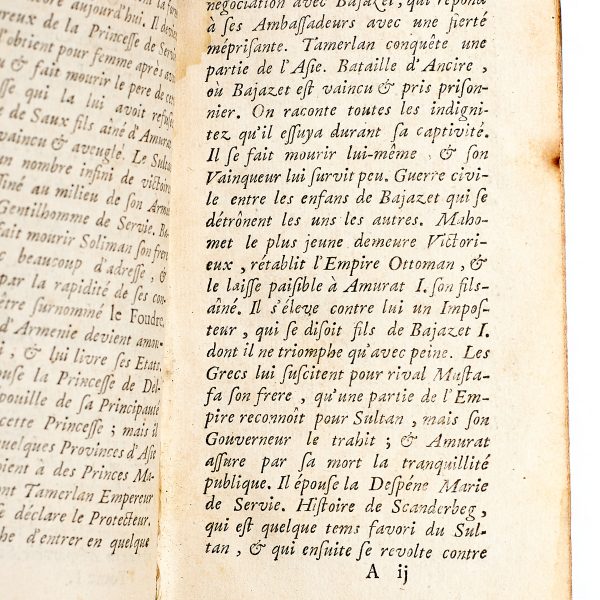 encore aujourd'hui. Il devient
amoureux de la Princesse de Servie
l'obtient pour femme après avoir
& fait mourir le pere de cette
qui la lui avoit refusé
de Saux fils aîné d'Amurat,
vaincu & aveuglé. Le Sultan
un nombre infini de victoire
siné au milieu de son Armée
Gentilhomme de Servie. Ba
fait mourir Soliman son frere
beaucoup d'adresse, &
par la rapidité de ses con
être surnommé le Foudre.
d'Armenie devient amou
, & lui livre ses Etats,
ouse la Princesse de Del
pouille de sa Principauté
cette Princesse ; mais il
quelques Provinces d'Asie
oient à des Princes Ma
ont Tamerlan Empereur
se déclare le Protecteur.
he d'entrer en quelque
négociation avec Bajazet, qui répond
à ses Ambassadeurs avec une fierté
méprisante. Tamerlan conquête une
partie de l'Asie. Bataille d'Ancire,
où Bajazet est vaincu & pris prison-
nier. On raconte toutes les indigni-
tez qu'il essuya durant sa captivité.
Il se fait mourir lui-même & son
Vainqueur lui survit peu. Guerre civi-
le entre les enfans de Bajazet qui se
détrônent les uns les autres. Maho-
met le plus jeune demeure Victori-
eux, rétablit l'Empire Ottoman, &
le laisse paisible à Amurat I. son fils-
aîné. Il s'éleve contre lui un Impos-
teur, qui se disoit fils de Bajazet I.
dont il ne triomphe qu'avec peine. Les
Grecs lui suscitent pour rival Musta-
fa son frere, qu'une partie de l'Em-
pire reconnoît pour Sultan, mais son
Gouverneur le trahit ; & Amurat
assure par sa mort la tranquillité
publique. Il épouse la Despéne Marie
de Servie. Histoire de Scanderbeg,
qui est quelque tems favori du Sul-
tan, & qui ensuite se revolte contre
A ij